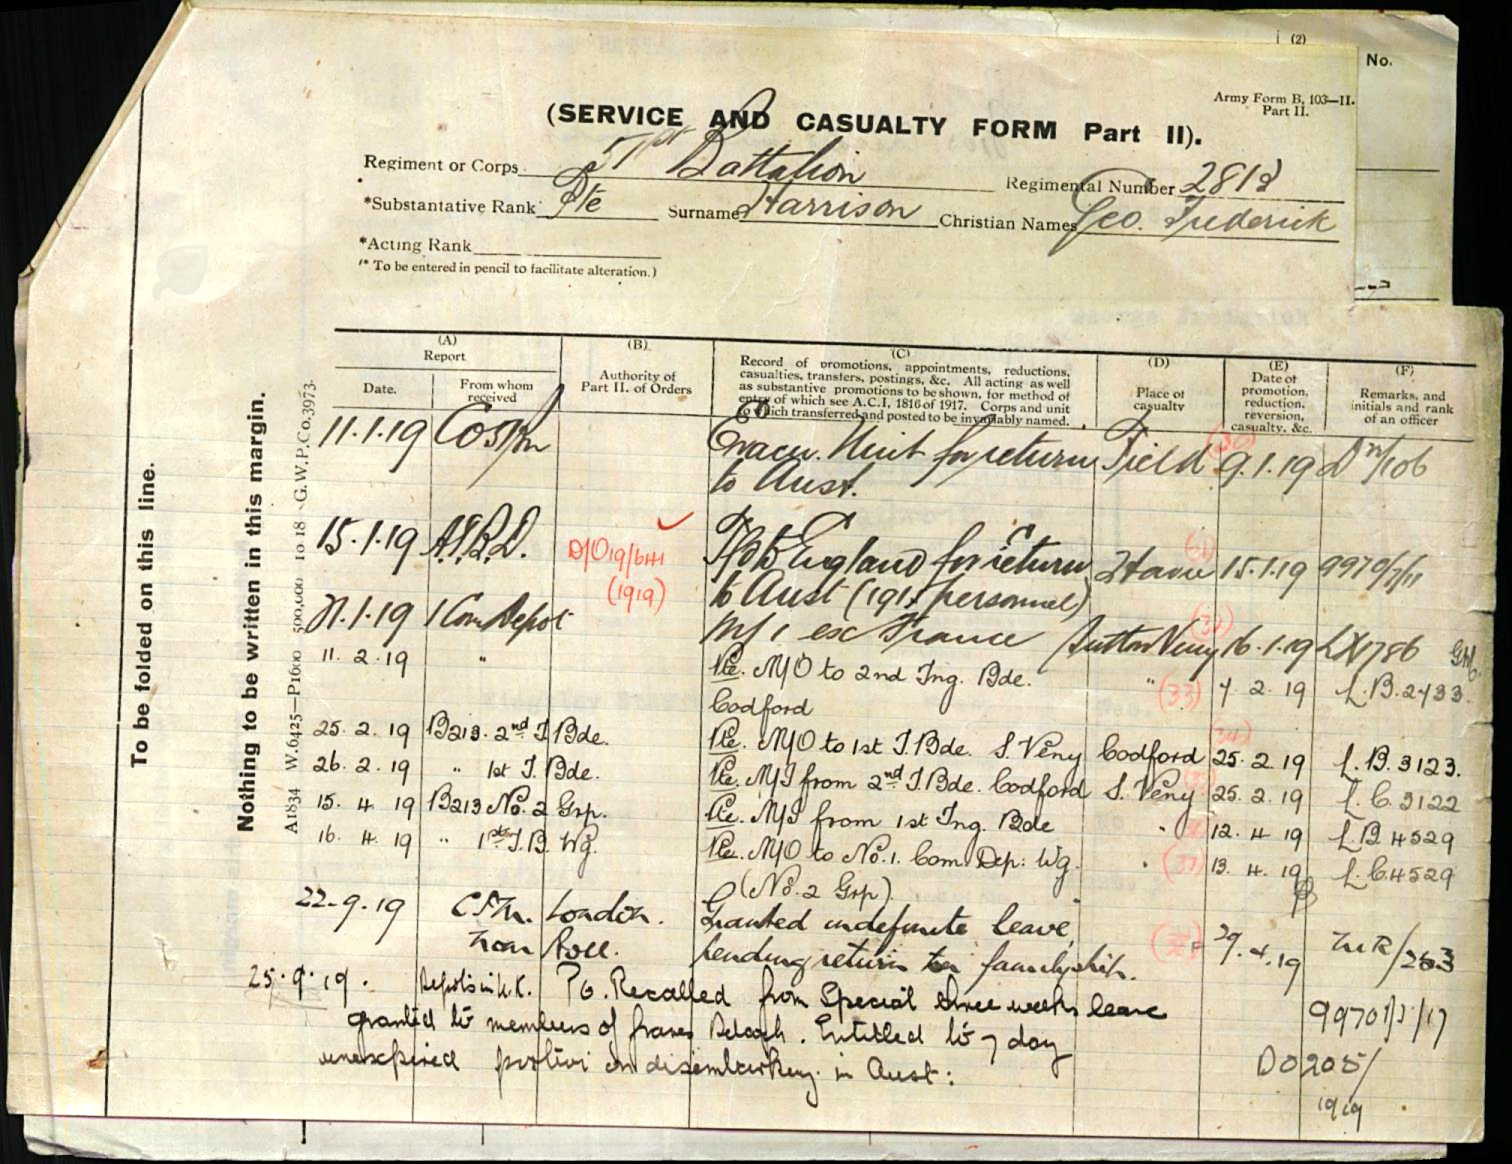 (2)
No.
Army Form B. 103—II.
Part II.
(SERVICE AND CASUALTY FORM Part II).
Regiment or Corps 51st Battalion Regimental Number 2812
*Substantative Rank Pte Surname Harrison Christian Names Geo. Frederick
*Acting Rank
(* To be entered in pencil to facilitate alteration.)
To be folded on this line.
Nothing to be written in this margin.
A1834 W.6425—P1600 500,000 10 18 G.W.P.Co.3973.
(A) Report
Date. From whom received
(B) Authority of Part II. of Orders
(C) Record of promotions, appointments, reductions,
casualties, transfers, postings, &c. All acting as well
as substantive promotions to be shown, for method of
entry of which see A.C.I, 1816 of 1917. Corps and unit
to which transferred and posted to be invariably named.
(D) Place of casualty
(E) Date of promotion, reduction, reversion, casualty, &c.
(F) Remarks, and initials and rank of an officer
11.1.19 Evacu. Unit for return Field 9.1.19
to Aust.
15.1.19 England for return Havre 15.1.19 9970/7/11
to Aust personnel)
(1919)
1 Com Depot M/I ex France Sutton Veny 16.1.19
11.2.19 " Pte. M/O to 2nd Tng. Bde. " (33) 7.2.19 L.B.2433
Codford
25.2.19 B213. 2nd T. Bde. Pte. M/O to 1st T. Bde. S. Veny Codford 25.2.19 L.B.3123.
26.2.19 " 1st T. Bde. Pte. M/I from 2nd T. Bde. Codford S. Veny 25.2.19 L.C.3122
15.4.19 B213 No. 2 Grp. Pte. M/I from 1st Tng. Bde " 12.4.19 L.B 4529
16.4.19 " 1st T.B. Wg. Pte. M/O to No. 1. Com. Dep: Wg. " (37) 13.4.19 L.C.4529
(No. 2 Grp)
22-9-19 London. Granted indefinite leave
Nom Roll. pending return to family ship. 29.4.19
25.9.19. Depots in U.K. Recalled from Special three weeks leave 9970/
granted to members of Entitled to 7 day DO205/
unexpired portion on disembarking in Aust: 1919